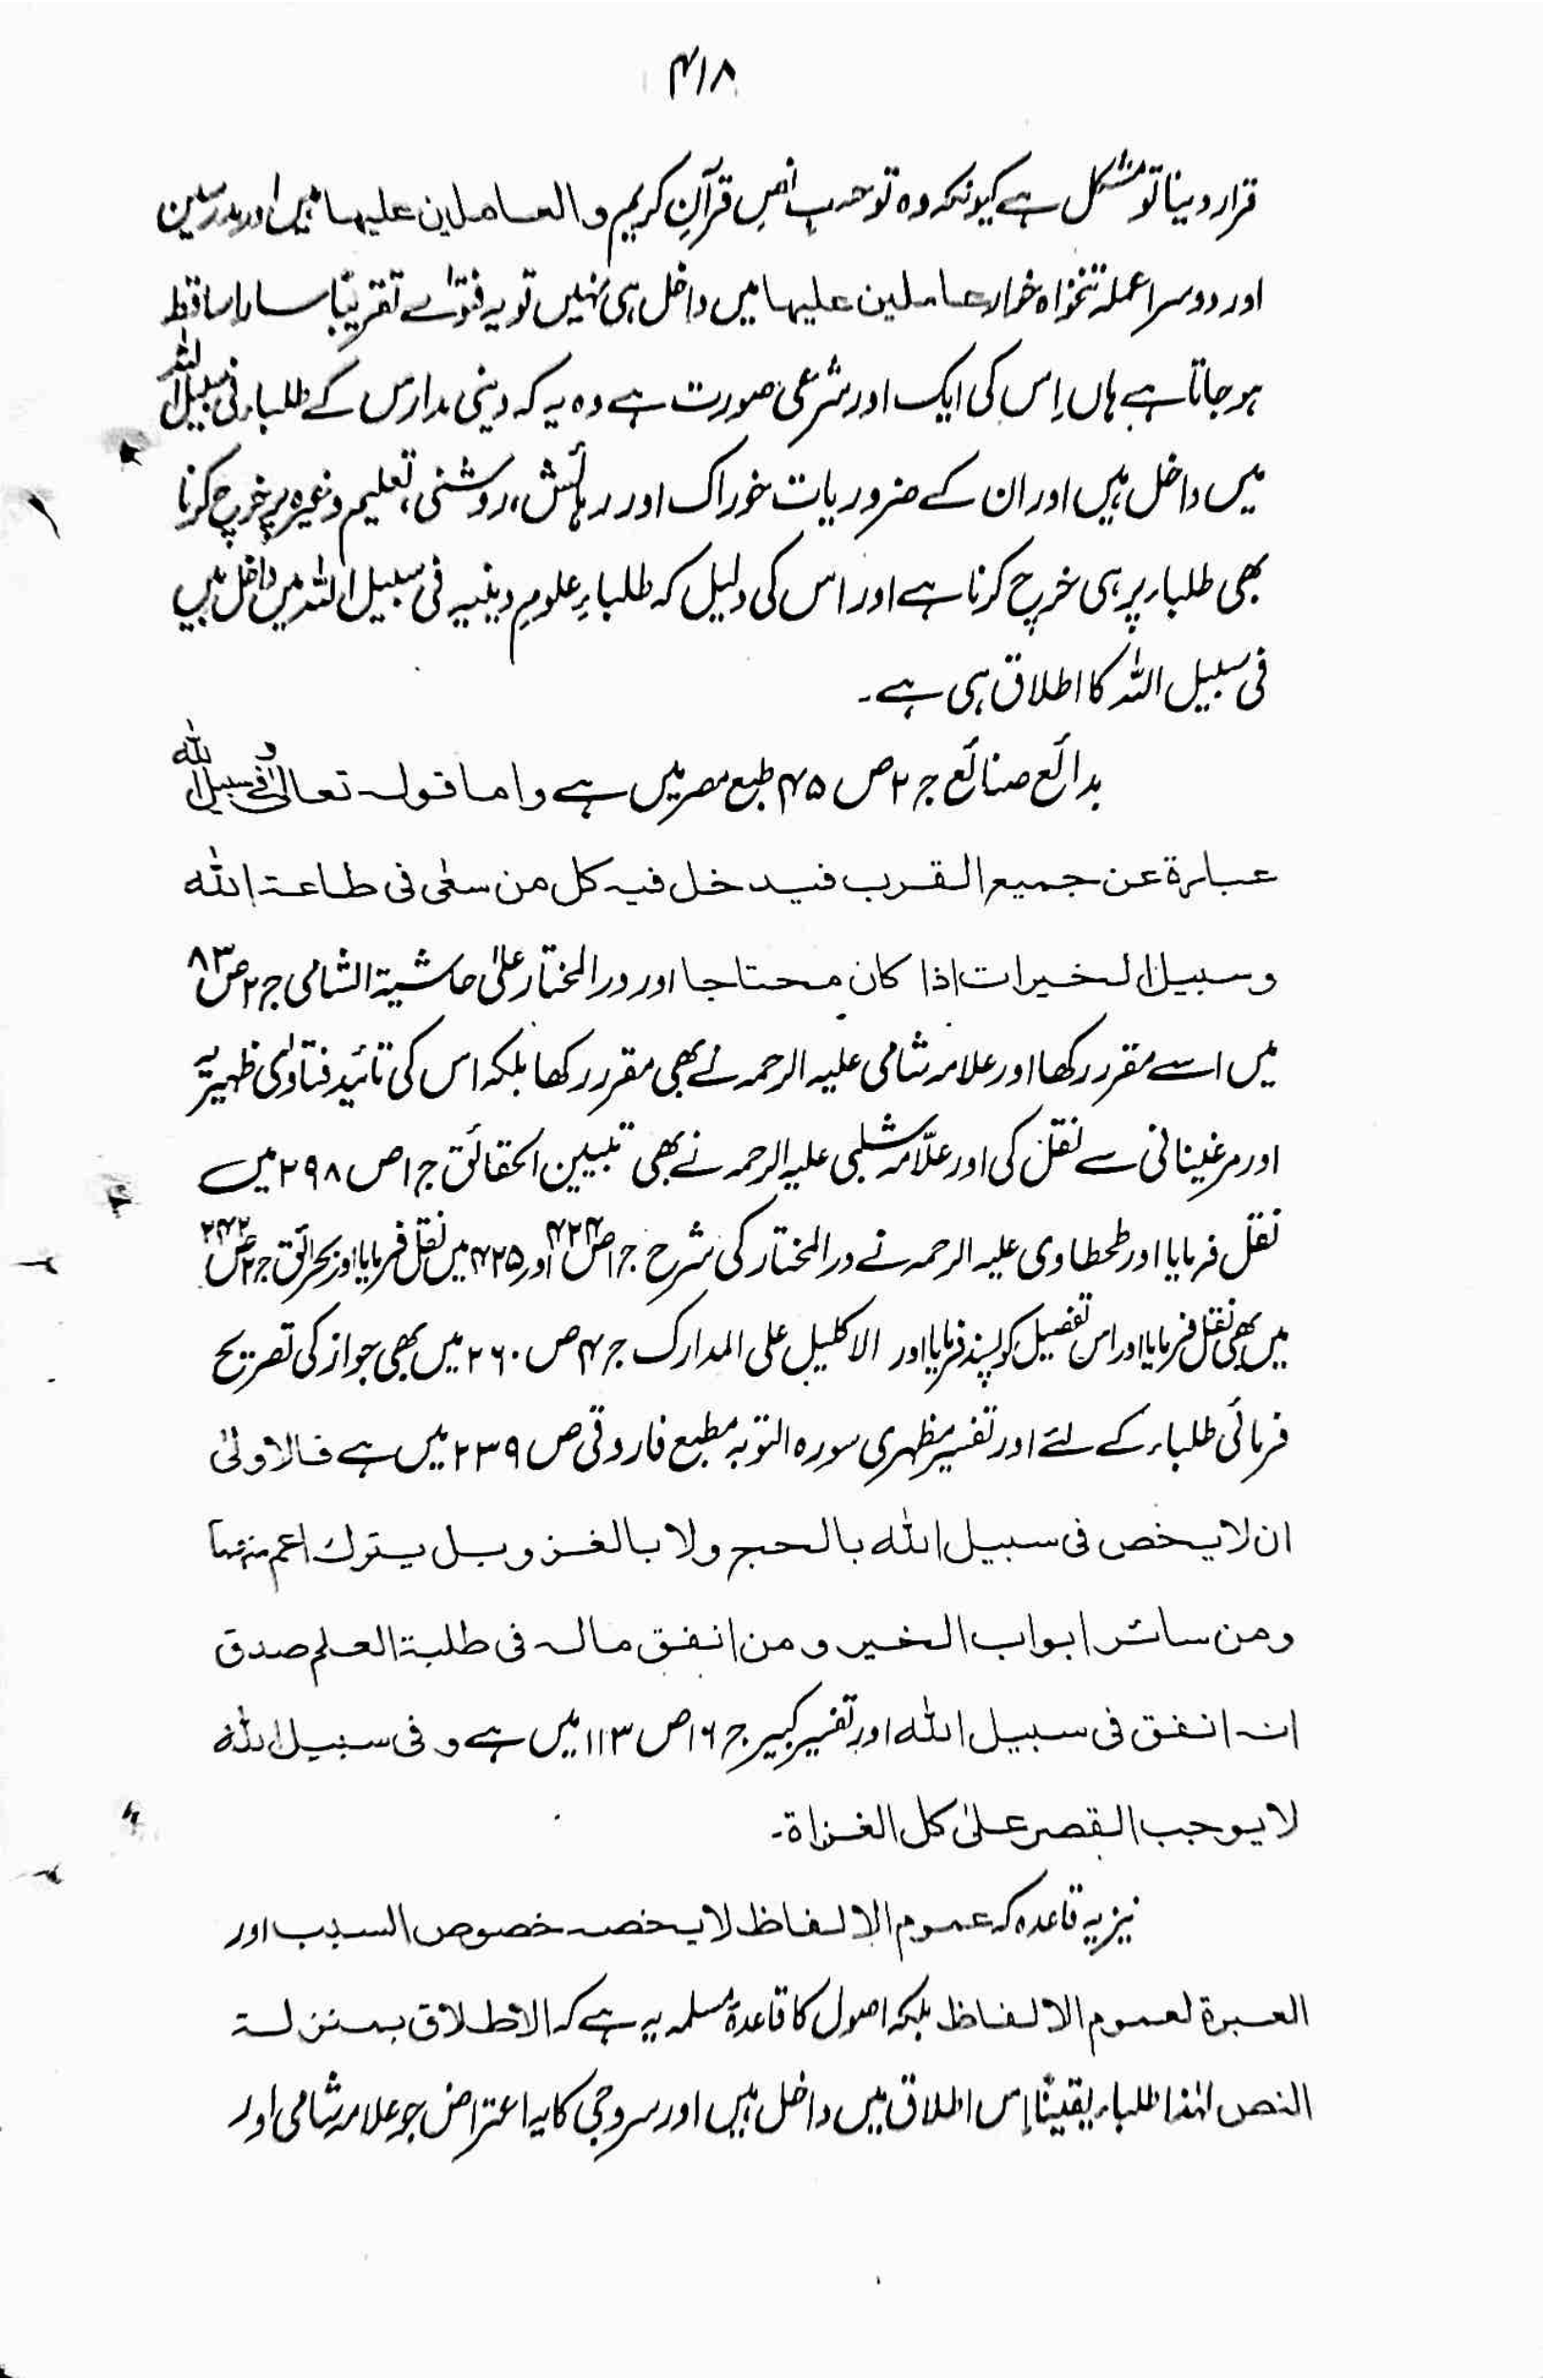 ۴۱۸
قرار دینا تو مشکل ہے کیونکہ وہ تو حسب نص قرآنِ کریم والعاملین علیہا ہیں اور مدرسین
اور دوسرا عملہ تنخواہ خوار عاملین علیہا میں داخل ہی نہیں تو یہ فتوٰے تقریبًا سارا ساقط
ہو جاتا ہے ہاں اِس کی ایک اور شرعی صورت ہے وہ یہ کہ دینی مدارس کے طلباء فی سبیل اللہ
میں داخل ہیں اور ان کے ضروریات خوراک اور رہائش، روشنی، تعلیم وغیرہ پر خرچ کرنا
بھی طلباء پر ہی خرچ کرنا ہے اور اس کی دلیل کہ طلباءِ علومِ دینیہ فی سبیل اللہ میں داخل ہیں
فی سبیل اللہ کا اطلاق ہی ہے۔
بدائع صنائع ج ۲ ص ۴۵ طبع مصر میں ہے واما قولہ تعالٰی و فی سبیل اللہ
عبارة عن جمیع القرب فید خل فیہ کل من سعٰی فی طاعة اللہ
وسبیل الخیرات اذا کان محتاجا اور در المختار علیٰ حاشیة الشامی ج ۲ ص ۸۳
میں اسے مقرر رکھا اور علامہ شامی علیہ الرحمہ نے بھی مقرر رکھا بلکہ اس کی تائید فتاوٰی ظہیریہ
اور مرغینانی سے نقل کی اور علّامہ شلبی علیہ الرحمہ نے بھی تبیین الحقائق ج ۱ ص ۲۹۸ میں
نقل فرمایا اور طحطاوی علیہ الرحمہ نے در المختار کی شرح ج ۱ ص ۴۲۴ اور ۴۲۵ میں نقل فرمایا اور بحرالرائق ج ۲ ص ۲۴۲
میں بھی نقل فرمایا اور اس تفصیل کو پسند فرمایا اور الاکلیل علی المدارک ج ۴ ص ۲۶۰ میں بھی جواز کی تصریح
فرمائی طلباء کے لئے اور تفسیر مظہری سورہ التوبہ مطبع فاروقی ص ۲۳۹ میں ہے فالاولیٰ
ان لا یخص فی سبیل اللہ بالحج ولا بالغزو بل یترك اعم منہما
ومن سائر ابواب الخیر ومن انفق مالہ فی طلبة العلم صدق
انہ انفق فی سبیل اللہ اور تفسیر کبیر ج ۱۶ ص ۱۱۳ میں ہے و فی سبیل اللہ
لا یوجب القصر علیٰ کل الغزاة۔
نیز یہ قاعدہ کہ عموم الالفاظ لا یخصہ خصوص السبب اور
العبرة لعموم الالفاظ بلکہ اصول کا قاعدۂ مسلمہ یہ ہے کہ الاطلاق بمنزلة
النص لہٰذا طلباء یقینًا اِس اطلاق میں داخل ہیں اور سروجی کا یہ اعتراض جو علامہ شامی اور